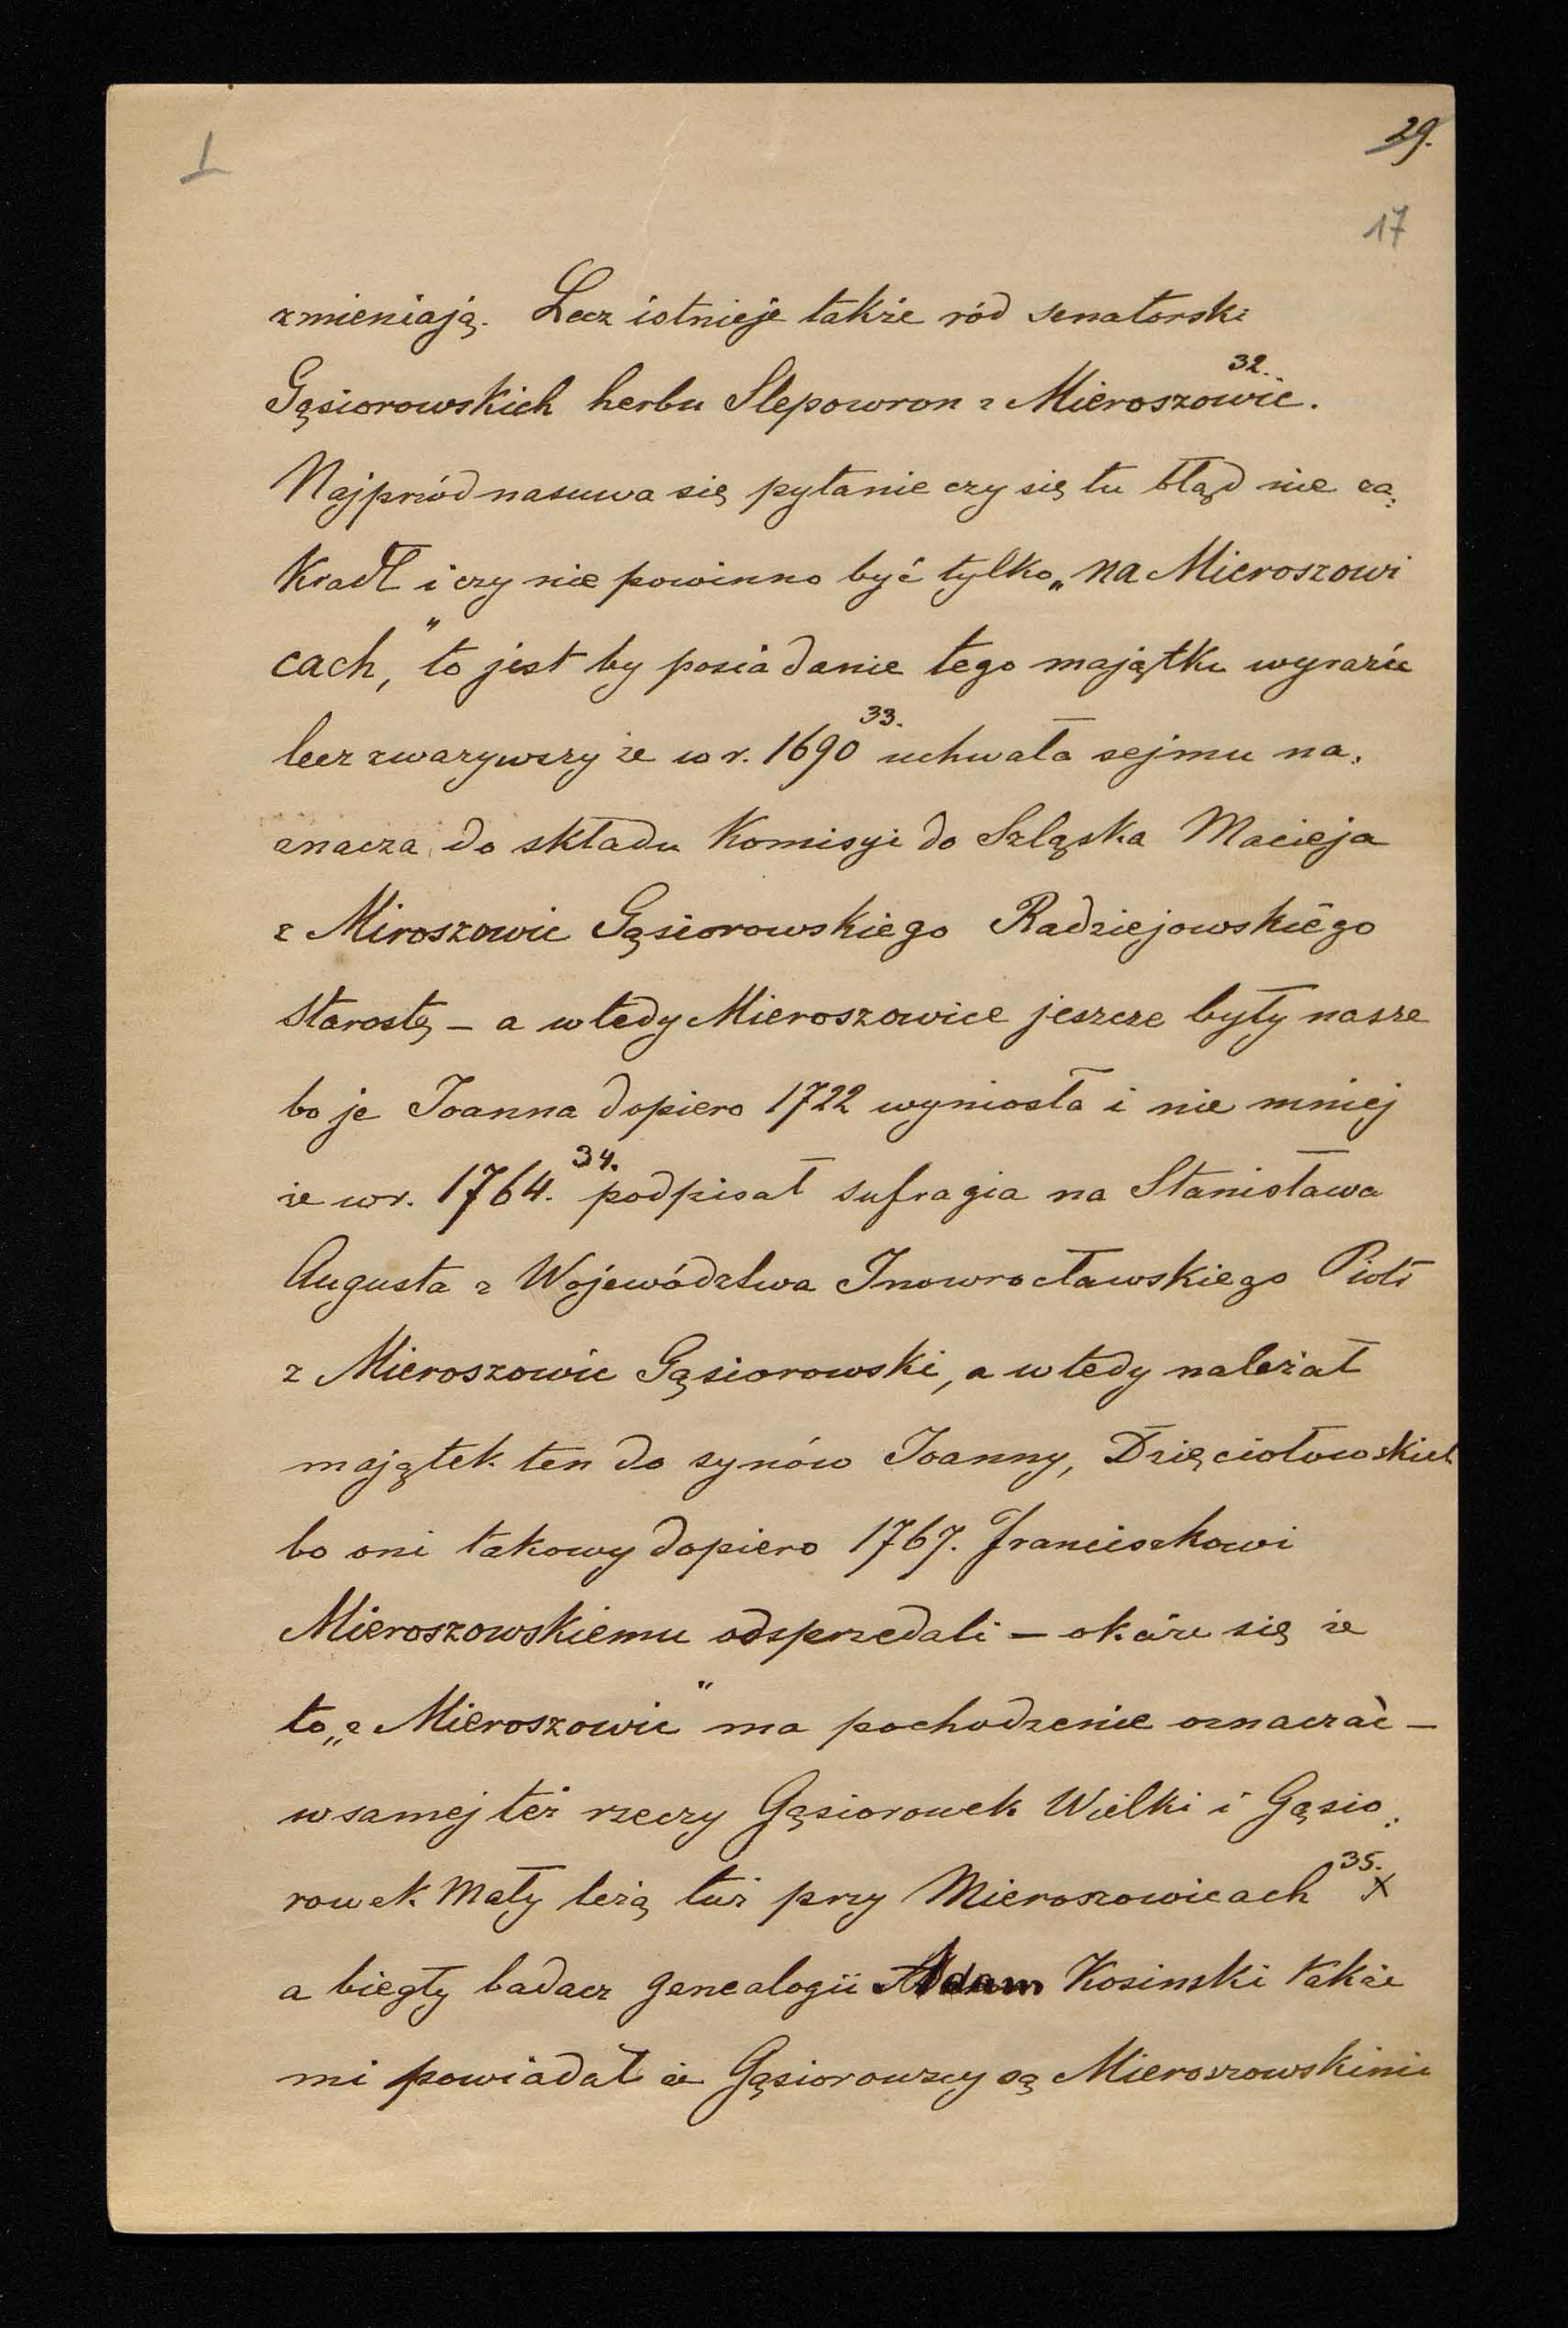 I
29.
17
zmieniają. Lecz istnieje także ród senatorski
Gąsiorowskich herbu Slepowron z Mieroszowic. 32.
Najpriód nasuwa się pytanie czy się tu błąd nie za:
Kradł i czy nie powinno być tylko „na Mieroszowi
cach," to jest by posiadanie tego majątku wyrazić
lecz zwarzywszy że w r. 1690 33. uchwała sejmu na.
znacza do składu Komisyi do Szląska Macieja
z Miroszowic Gąsiorowskiego Radziejowskiego
Starostę – a wtedy Mieroszowice jeszcze były nasze
bo je Joanna dopiero 1722 wyniosła i nie mniej
że w r. 1764. 34. podpisał sufragia na Stanisława
Augusta z Województwa Inowrocławskiego Piotr
z Mieroszowic Gąsiorowski, a wtedy należał
majątek ten do synów Joanny, Dzięciołowskich
bo oni takowy dopiero 1767. Franciszkowi
Mieroszowskiemu odsprzedali – okáże się że
to „z Mieroszowic" ma pochodzenie oznaczać –
w samej też rzeczy Gąsiorowek Wielki i Gąsio:
rowek Mały leżą tuż przy Mieroszowicach 35. x
a biegły badacz genealogii Adam Kosinski także
mi powiadał że Gąsiorowscy są Mieroszowskimi